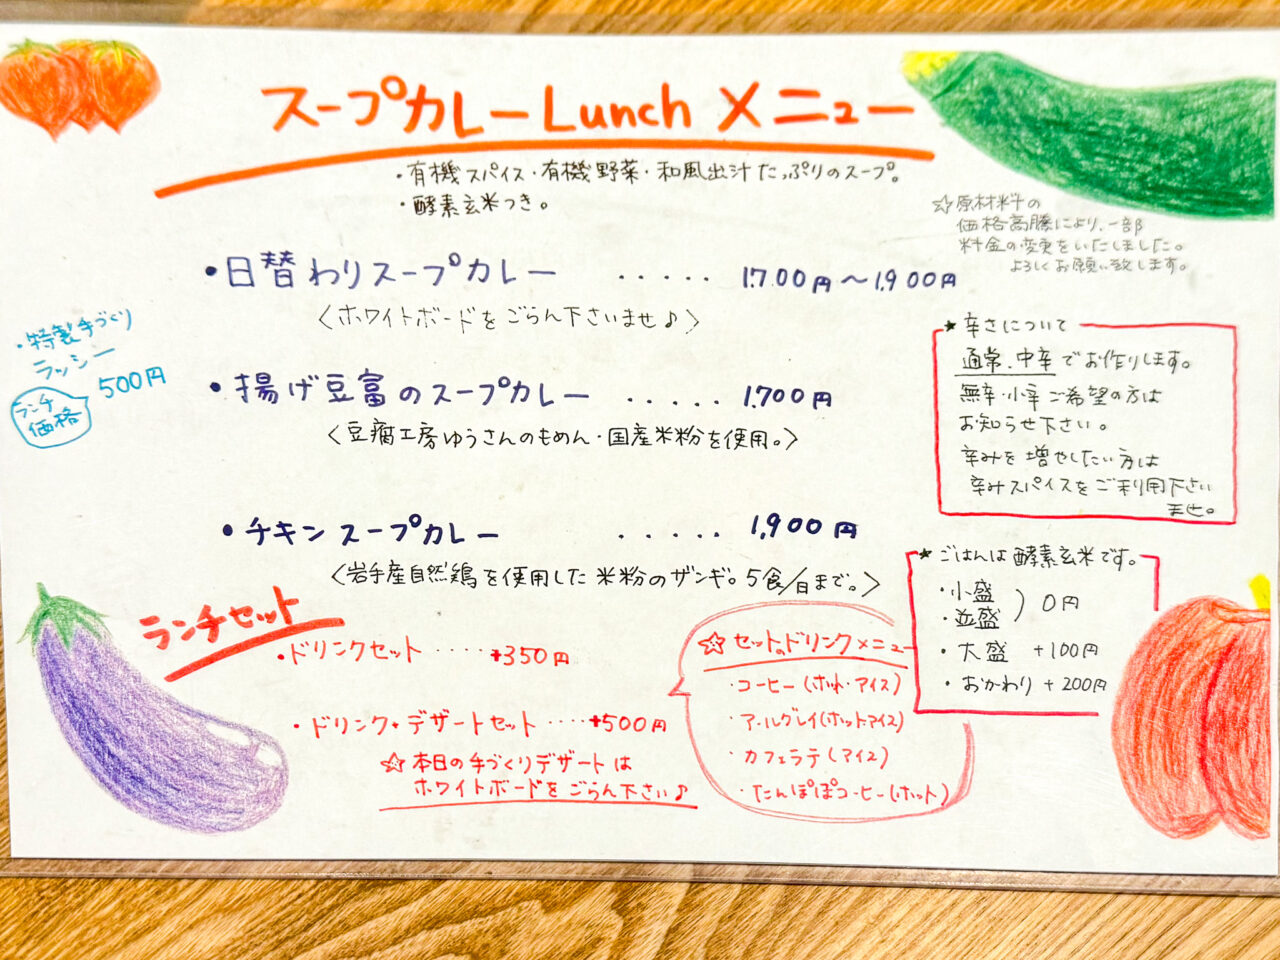 スープカレー Lunch メニュー
・有機スパイス・有機野菜・和風出汁たっぷりのスープ。
・酵素玄米つき。
☆原材料の
価格高騰により、一部
料金の変更をいたしました。
よろしくお願い致します。
・日替わりスープカレー ..... 1,700円〜1,900円
〈ホワイトボードをごらん下さいませ♪〉
・特製手づくり
ラッシー
500円
ランチ
価格
・揚げ豆富のスープカレー ..... 1,700円
〈豆腐工房ゆうさんのもめん・国産米粉を使用。〉
・チキンスープカレー ..... 1,900円
〈岩手産自然鶏を使用した米粉のザンギ。5食/日まで。〉
★辛さについて
通常、中辛でお作りします。
無辛・小辛ご希望の方は
お知らせ下さい。
辛みを増やしたい方は
辛みスパイスをご利用下さい
ませ。
★ごはんは酵素玄米です。
・小盛
・並盛
) 0円
・大盛 +100円
・おかわり +200円
ランチセット
・ドリンクセット ..... +350円
・ドリンク+デザートセット ..... +500円
☆本日の手づくりデザートは
ホワイトボードをごらん下さい♪
☆セットのドリンクメニュー
・コーヒー(ホット・アイス)
・アールグレイ(ホット・アイス)
・カフェラテ(アイス)
・たんぽぽコーヒー(ホット)